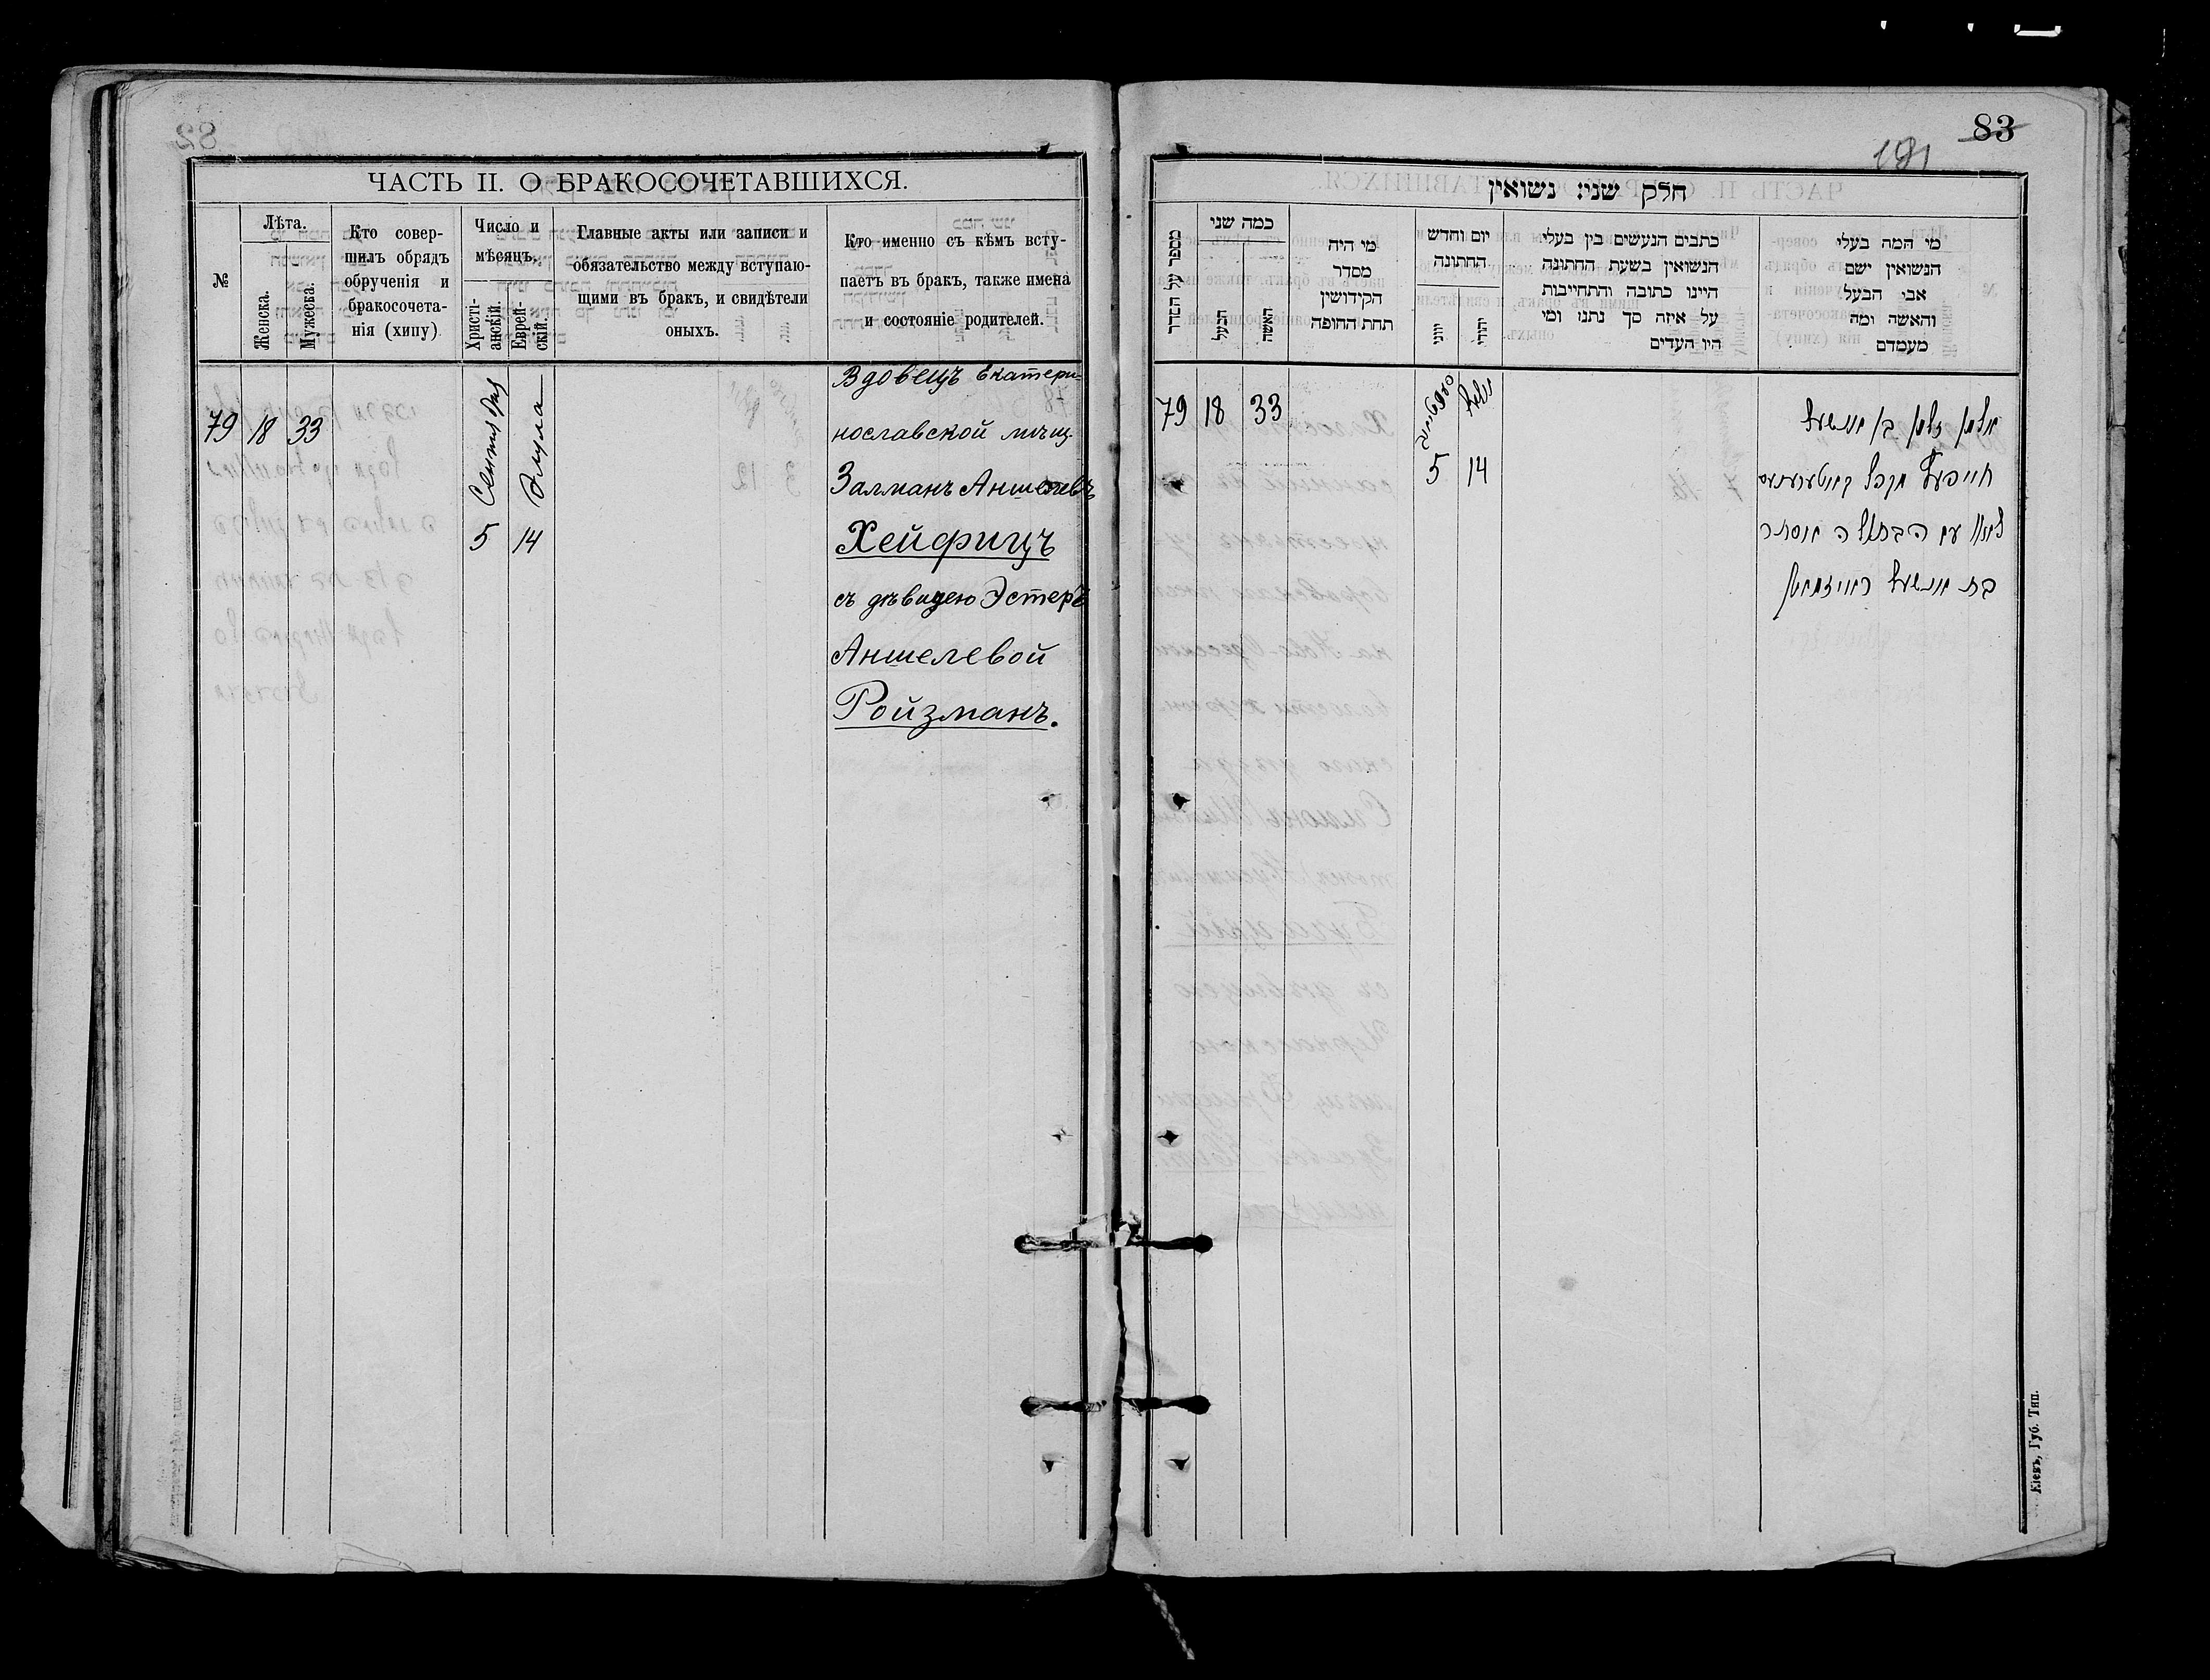 ЧАСТЬ II. О БРАКОСОЧЕТАВШИХСЯ.
№
Лѣта.
Женска.
Мужеска.
Кто совер-
шилъ обрядъ
обрученія и
бракосочета-
нія (хипу)
Число и
мѣсяцъ.
Христі-
анскій.
Еврей-
скій.
Главные акты или записи и
обязательство между вступаю-
щими въ бракъ, и свидѣтели
оныхъ.
Кто именно съ кѣмъ всту-
паетъ въ бракъ, также имена
и состояніе родителей.
79 18 33
Сентября
5
Элула
14
Вдовецъ Екатери-
нославской мѣщ.
Залманъ Аншелевъ
Хейфицъ
съ дѣвицею Эстеръ
Аншелевой
Ройзманъ.
83
181
חלק שני: נשואין
מספר על הסדר
כמה שני
הבעל
האשה
מי היה
מסדר
הקידושין
תחת החופה
יום וחדש
החתונה
יווני
יהודי
כתבים הנעשים בין בעלי
הנשואין בשעת החתונה
היינו כתובה והתחייבות
על איזה סך נתנו ומי
היו העדים
מי המה בעלי
הנשואין ושם
אבי הבעל
והאשה ומה
מעמדם
79 18 33
5
אלול
14
אלמן זלמן בן אנשעל
חייפעץ
עם הבתולה אסתר
בת אנשעל רויזמאן
Кіевъ, Губ. Тип.